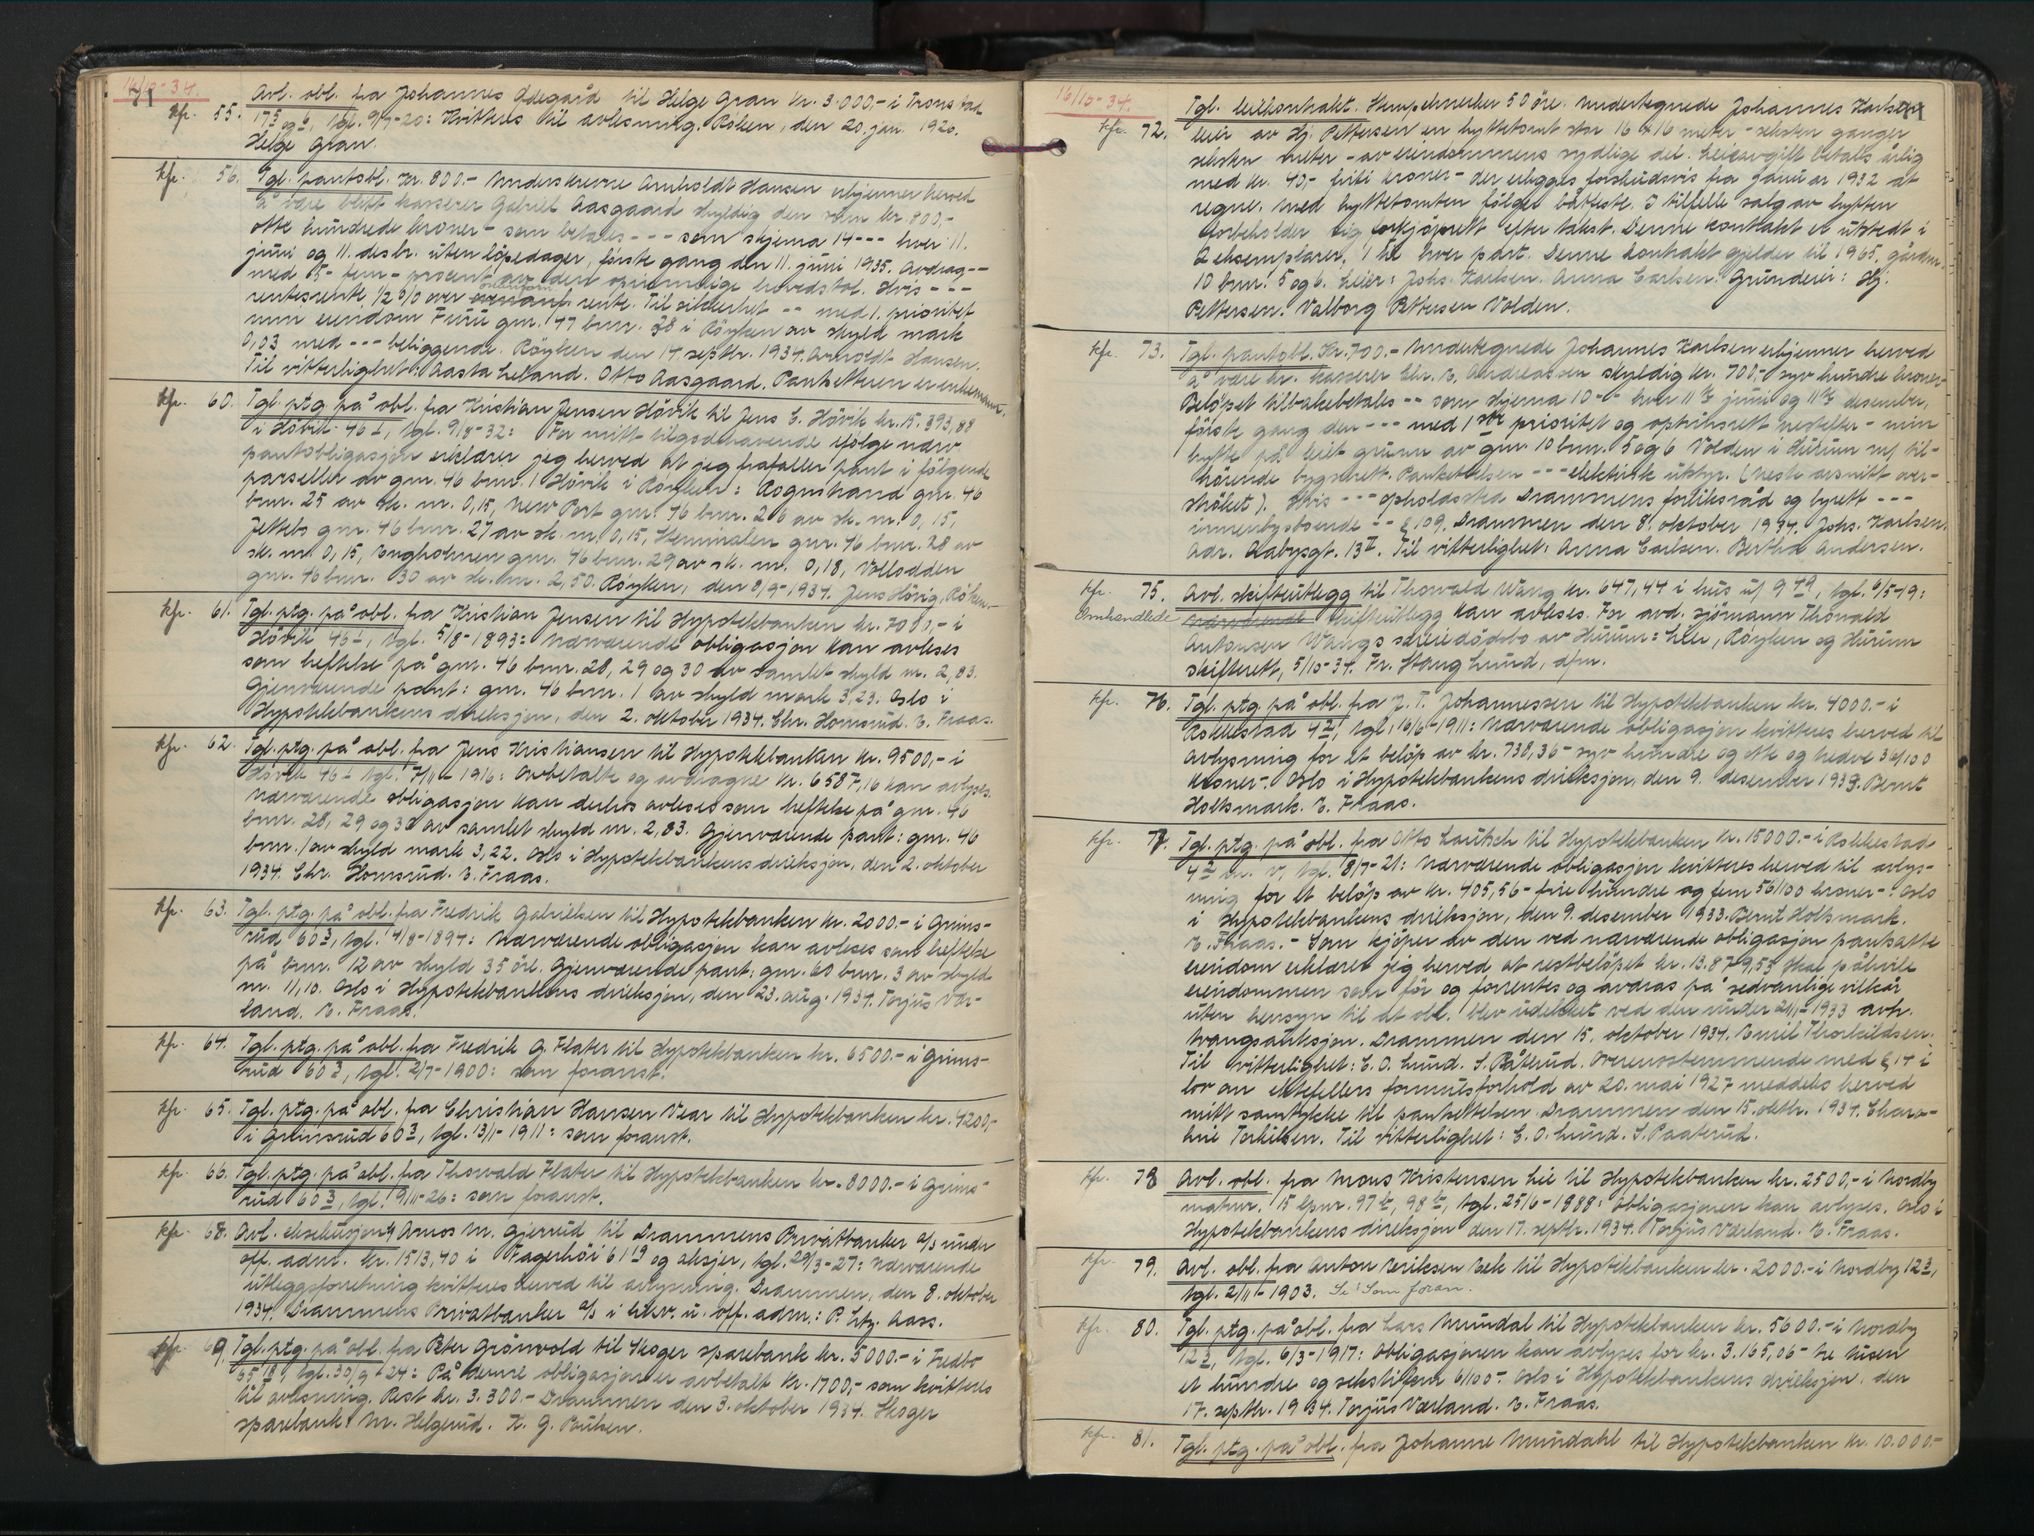 16/10-34.
71
kfr. 55. Avl. obl. fra Johannes Ödegård til Helge Gran kr. 3.000,- i Tronstad
17 5 og 6, tgl. 9/7-20: Kvitteres til avlesning. Röken, den 20. jan. 1920.
Helge Gran.
kfr. 56. Tgl. pantobl. kr. 800.- Underskrevne Arnholdt Hansen erkjenner herved
å være blitt kasserer Gabriel Aasgaard skyldig den sum kr. 800,-
otte hundrede kroner - som betales --- som skjema 14 --- hver 11.
juni og 11. desbr. uten löpedager, förste gang den 11. juni 1935. Avdrag --
med 5 - fem - procent av den oprinnelige hovedstol. Hvis ---
rentesrente 1/2 % over rente. Til sikkerhet -- med 1. prioritet
min eiendom Furu gnr. 47 bnr. 38 i Röyken av skyld mark
0,03 med --- beliggende. Röyken den 14. septbr. 1934. Arnoldt Hansen.
Til vitterlighet: Aasta Leland. Otto Aasgaard. Pantsetteren er enkemann.
kfr. 60. Tgl. ptg. på obl. fra Kristian Jensen Hövik til Jens C. Hövik kr. 15.393,88
i Hövik 46 1, tgl. 9/8-32: For mitt tilgodehavende ifölge nærv.
pantobligasjon erklærer jeg herved at jeg frafaller pant i fölgende
parseller av gnr. 46 bnr. 1 Hövik i Röyken: Rognstrand gnr. 46
bnr. 25 av sk. m. 0,15, New Port gnr. 46 bnr. 26 av sk. m. 0,15,
Jettebo gnr. 46 bnr. 27 av sk. m. 0,15, gnr. 46 bnr. 28 av
sk. m. 0,15, Engholmen gnr. 46 bnr. 29 av sk. m. 0,18, Vollodden
gnr. 46 bnr. 30 av sk. m. 2,50. Röyken, den 8/9-1934. Jens Hövig, Röken.
kfr. 61. Tgl. ptg. på obl. fra Kristian Jensen til Hypotekbanken kr. i
Hövik 46 1, tgl. 5/8-1893: Nærværende obligasjon kan avleses
som heftelse på gnr. 46 bnr. 28, 29 og 30 av samlet skyld m. 2,83.
Gjenværende pant: gnr. 46 bnr. 1 av skyld mark 3,23. Oslo i
Hypotekbankens direksjon, den 2. oktober 1934. Chr. Homsrud. E. Fraas.
kfr. 62. Tgl. ptg. på obl. fra Jens Kristiansen til Hypotekbanken kr. 9500,- i
Hövik 46 1 tgl. 7/11-1916: Avbetalte og avdragne kr. 6587,16 kan avlyses.
Nærværende obligasjon kan derhos avleses som heftelse på gnr. 46
bnr. 28, 29 og 30 av samlet skyld m. 2,83. Gjenværende pant: gnr. 46
bnr. 1 av skyld mark 3,22. Oslo i Hypotekbankens direksjon, den 2. oktober
1934. Chr. Homsrud. E. Fraas.
kfr. 63. Tgl. ptg. på obl. fra Fredrik Gabrielsen til Hypotekbanken kr. 2000.- i Grims-
rud 60 3, tgl. 4/8-1894: Nærværende obligasjon kan avleses som heftelse
på bnr. 12 av skyld 35 öre. Gjenværende pant: gnr. 60 bnr. 3 av skyld
m. 11,10. Oslo i Hypotekbankens direksjon, den 23. aug. 1934. Torjus Vær-
land. E. Fraas.
kfr. 64. Tgl. ptg. på obl. fra Fredrik G. Flater til Hypotekbanken kr. 6500.- i Grims-
rud 60 3, tgl. 2/7-1900: som foranst.
kfr. 65. Tgl. ptg. på obl. fra Christian Hansen Vear til Hypotekbanken kr. 4200,-
i Grimsrud 60 3, tgl. 13/1-1911: som foranst.
kfr. 66. Tgl. ptg. på obl. fra Thorvald Flater til Hypotekbanken kr. 8000.- i Grims-
rud 60 3, tgl. 9/11-26: som foranst.
kfr. 68. Avl. eksekusjon Amos M. Gjerrud til Drammens Privatbanken a/s under
off. adm. kr. 1513,40 i Fagerhöi 61 19 og aksjer, tgl. 29/3-27: Nærværende
utleggsforretning kvitteres herved til avlysning. Drammen, den 8. oktober
1934. Drammens Privatbanken a/s i likv. u. off. adm.: P. Ltz. Aass.
kfr. 69. Tgl. ptg. på obl. fra Peter Grönvold til Skoger sparebank kr. 5000.- i Fredbo
65 18, tgl. 30/9-24: På denne obligasjon er avbetalt kr. 1700,- som kvitteres
til avlesning. Rest kr. 3.300.- Drammen den 3. oktober 1934. Skoger
sparebank: M. Helgerud. K. G. Paulsen.
16/10-34.
71
kfr. 72. Tgl. leiekontrakt. Stempelmerker 50 öre. Undertegnede Johannes Karlsen
leier av Hj. Pettersen en hyttetomt stor 16 x 16 meter - seksten ganger
seksten meter - av eiendommens sydlige del. Leieavgift betales årlig
med kr. 40,- firti kroner - der erlegges forskudsvis fra januar 1932 at
regne. Med hyttetomten fölger båtfeste. I tilfelle salg av hytten
forbeholder sig forkjöpsrett efter takst. Denne kontrakt er utstedt i
2 eksemplarer, 1 til hver part. Denne kontrakt gjelder til 1965, gårdnr.
10 bnr. 5 og 6. Leier: Johs. Karlsen. Anna Carlsen. Grundeier: Hj.
Pettersen. Valborg Pettersen Volden.
kfr. 73. Tgl. pantobl. kr. 700.- Undertegnede Johannes Karlsen erkjenner herved
å være hr. kasserer Chr. E. Andreassen skyldig kr. 700,- syv hundre kroner-
Belöpet tilbakebetales -- som skjema 10 -- hver 11te juni og 11te desember,
förste gang den --- med 1ste prioritet og optrinsrett nestefter - min
hytte på leiet grunn av gnr. 10 bnr. 5 og 6 Volden i Hurum m/ til-
hörende bygslrett. Pantsettelsen --- elektrisk utstyr. (neste avsnitt over-
ströket). Hvis --- opholdssted Drammens forliksråd og byrett ---
innenbysboende -- § 109. Drammen den 8. oktober 1934. Johs. Karlsen.
Adr. Aabysgt. 13 II. Til vitterlighet: Anna Carlsen. Bertha Andersen.
kfr. 75. Avl. skifteutlegg til Thorvald Wang kr. 647,44 i hus u/ 9 49, tgl. 6/5-19:
Omhandlede Nærværende skifteutlegg kan avleses. For avd. sjömann Thorvald
Antonsen Wangs særeiedödsbo av Hurum: Lier, Röyken og Hurum
skifterett, 5/10-34. Fr. Stang Lund, dfm.
kfr. 76. Tgl. ptg. på obl. fra J. T. Johannessen til Hypotekbanken kr. 4000.- i
Kokkestad 4 2, tgl. 16/6-1911: Nærværende obligasjon kvitteres herved til
avlysning for et belöp av kr. 738,36 - syv hundre og otte og tredve 36/100
kroner -. Oslo i Hypotekbankens direksjon, den 9. desember 1933. Bernt
Holtsmark. E. Fraas.
kfr. 77. Tgl. ptg. på obl. fra Otto Lautsch til Hypotekbanken kr. 15000.- i Kokkestad
4 2 tgl. 8/7-21: Nærværende obligasjon kvitteres herved til avlys-
ning for et belöp av kr. 405,56 - fire hundre og fem 56/100 kroner -: Oslo
i Hypotekbankens direksjon, den 9. desember 1933. Bernt Holtsmark.
E. Fraas. - Som kjöper av den ved nærværende obligasjon pantsatte
eiendom erklærer jeg herved at restbelöpet kr. 13.879,53 skal påhvile
eiendommen som för og forrentes og avdras på sedvanlige vilkår
uten hensyn til at obl. blev udekket ved den under 21/1-1933 avh.
tvangsauksjon. Drammen den 15. oktober 1934. Emil Thorkildsen.
Til vitterlighet: C. O. Lund. S. Påterud. Overensstemmende med § 14 i
lov om ektefellers formuesforhold av 20. mai 1927 meddeles herved
mitt samtykke til pantsettelsen. Drammen den 15. oktbr. 1934.
Torkilsen. Til vitterlighet: C. O. Lund. S. Paaterud.
kfr. 78 Avl. obl. fra Mons Kristensen Lie til Hypotekbanken kr. 2500,- i Nordby
matnr. 15 lpnr. 97 b, 98 b, tgl. 25/6-1888: Obligasjonen kan avlyses. Oslo i
Hypotekbankens direksjon den 17. septbr. 1934. Torjus Værland. E. Fraas.
kfr. 79. Avl. obl. fra Anton Eriksen Eek til Hypotekbanken kr. 2000.- i Nordby 12 3,
tgl. 2/11-1903. Se: Som foran.
kfr. 80. Tgl. ptg. på obl. fra Lars Mundal til Hypotekbanken kr. 5600.- i Nordby
12 3, tgl. 6/3-1917: Obligasjonen kan avlyses for kr. 3.165,06 - tre tusen
et hundre og sekstifem 6/100 - Oslo i Hypotekbankens direksjon, den
17. septbr. 1934. Torjus Værland. E. Fraas.
kfr. 81. Tgl. ptg. på obl. fra Johanne Mundahl til Hypotekbanken kr. 10.000.-